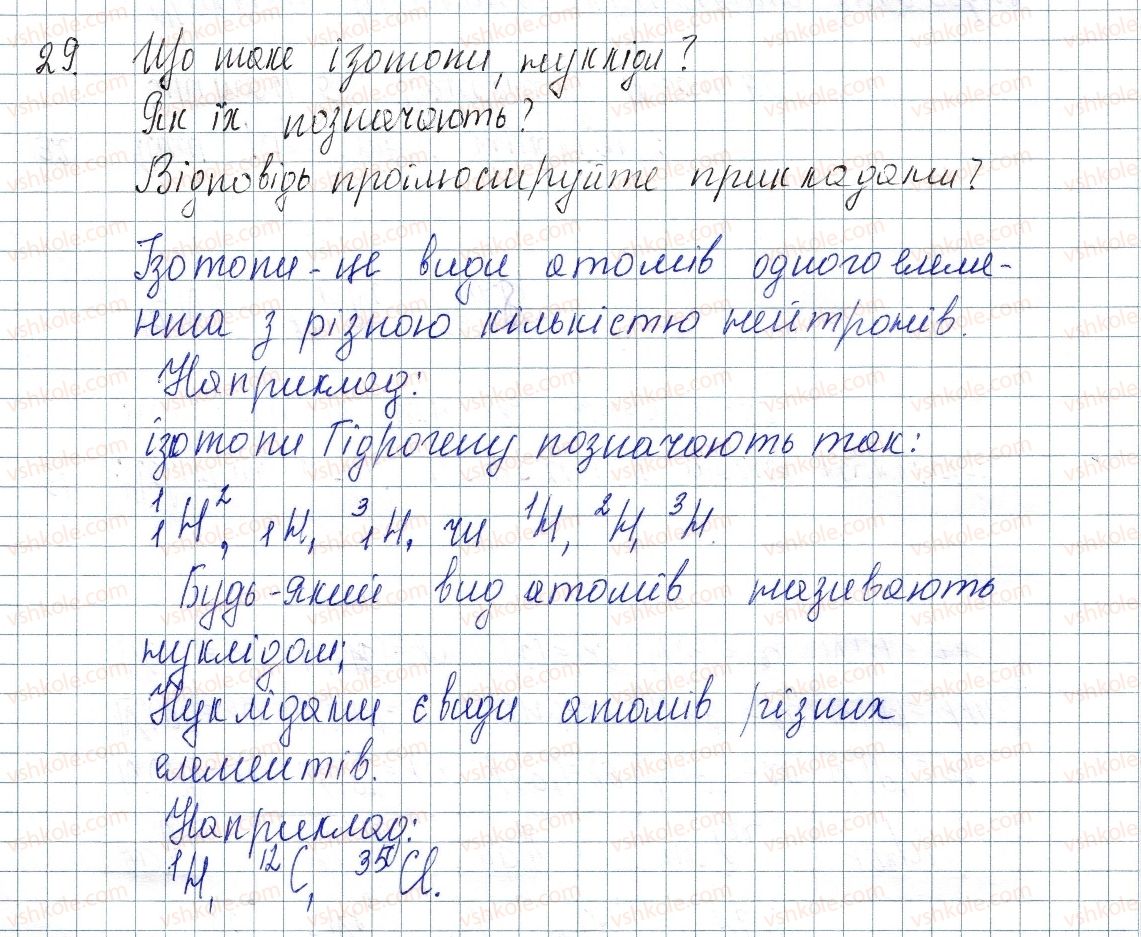 29. Що таке ізотопи, нукліди?
Як їх позначають?
Відповідь проілюструйте прикладами?
Ізотопи - це види атомів одного елеме-
нта з різною кількістю нейтронів.
Наприклад:
ізотопи Гідрогену позначають так:
¹₁H, ²₁H, ³₁H, чи ¹H, ²H, ³H.
Будь-який вид атомів називають
нуклідом;
Нуклідами є види атомів різних
елементів.
Наприклад:
¹H, ¹²C, ³⁵Cl.